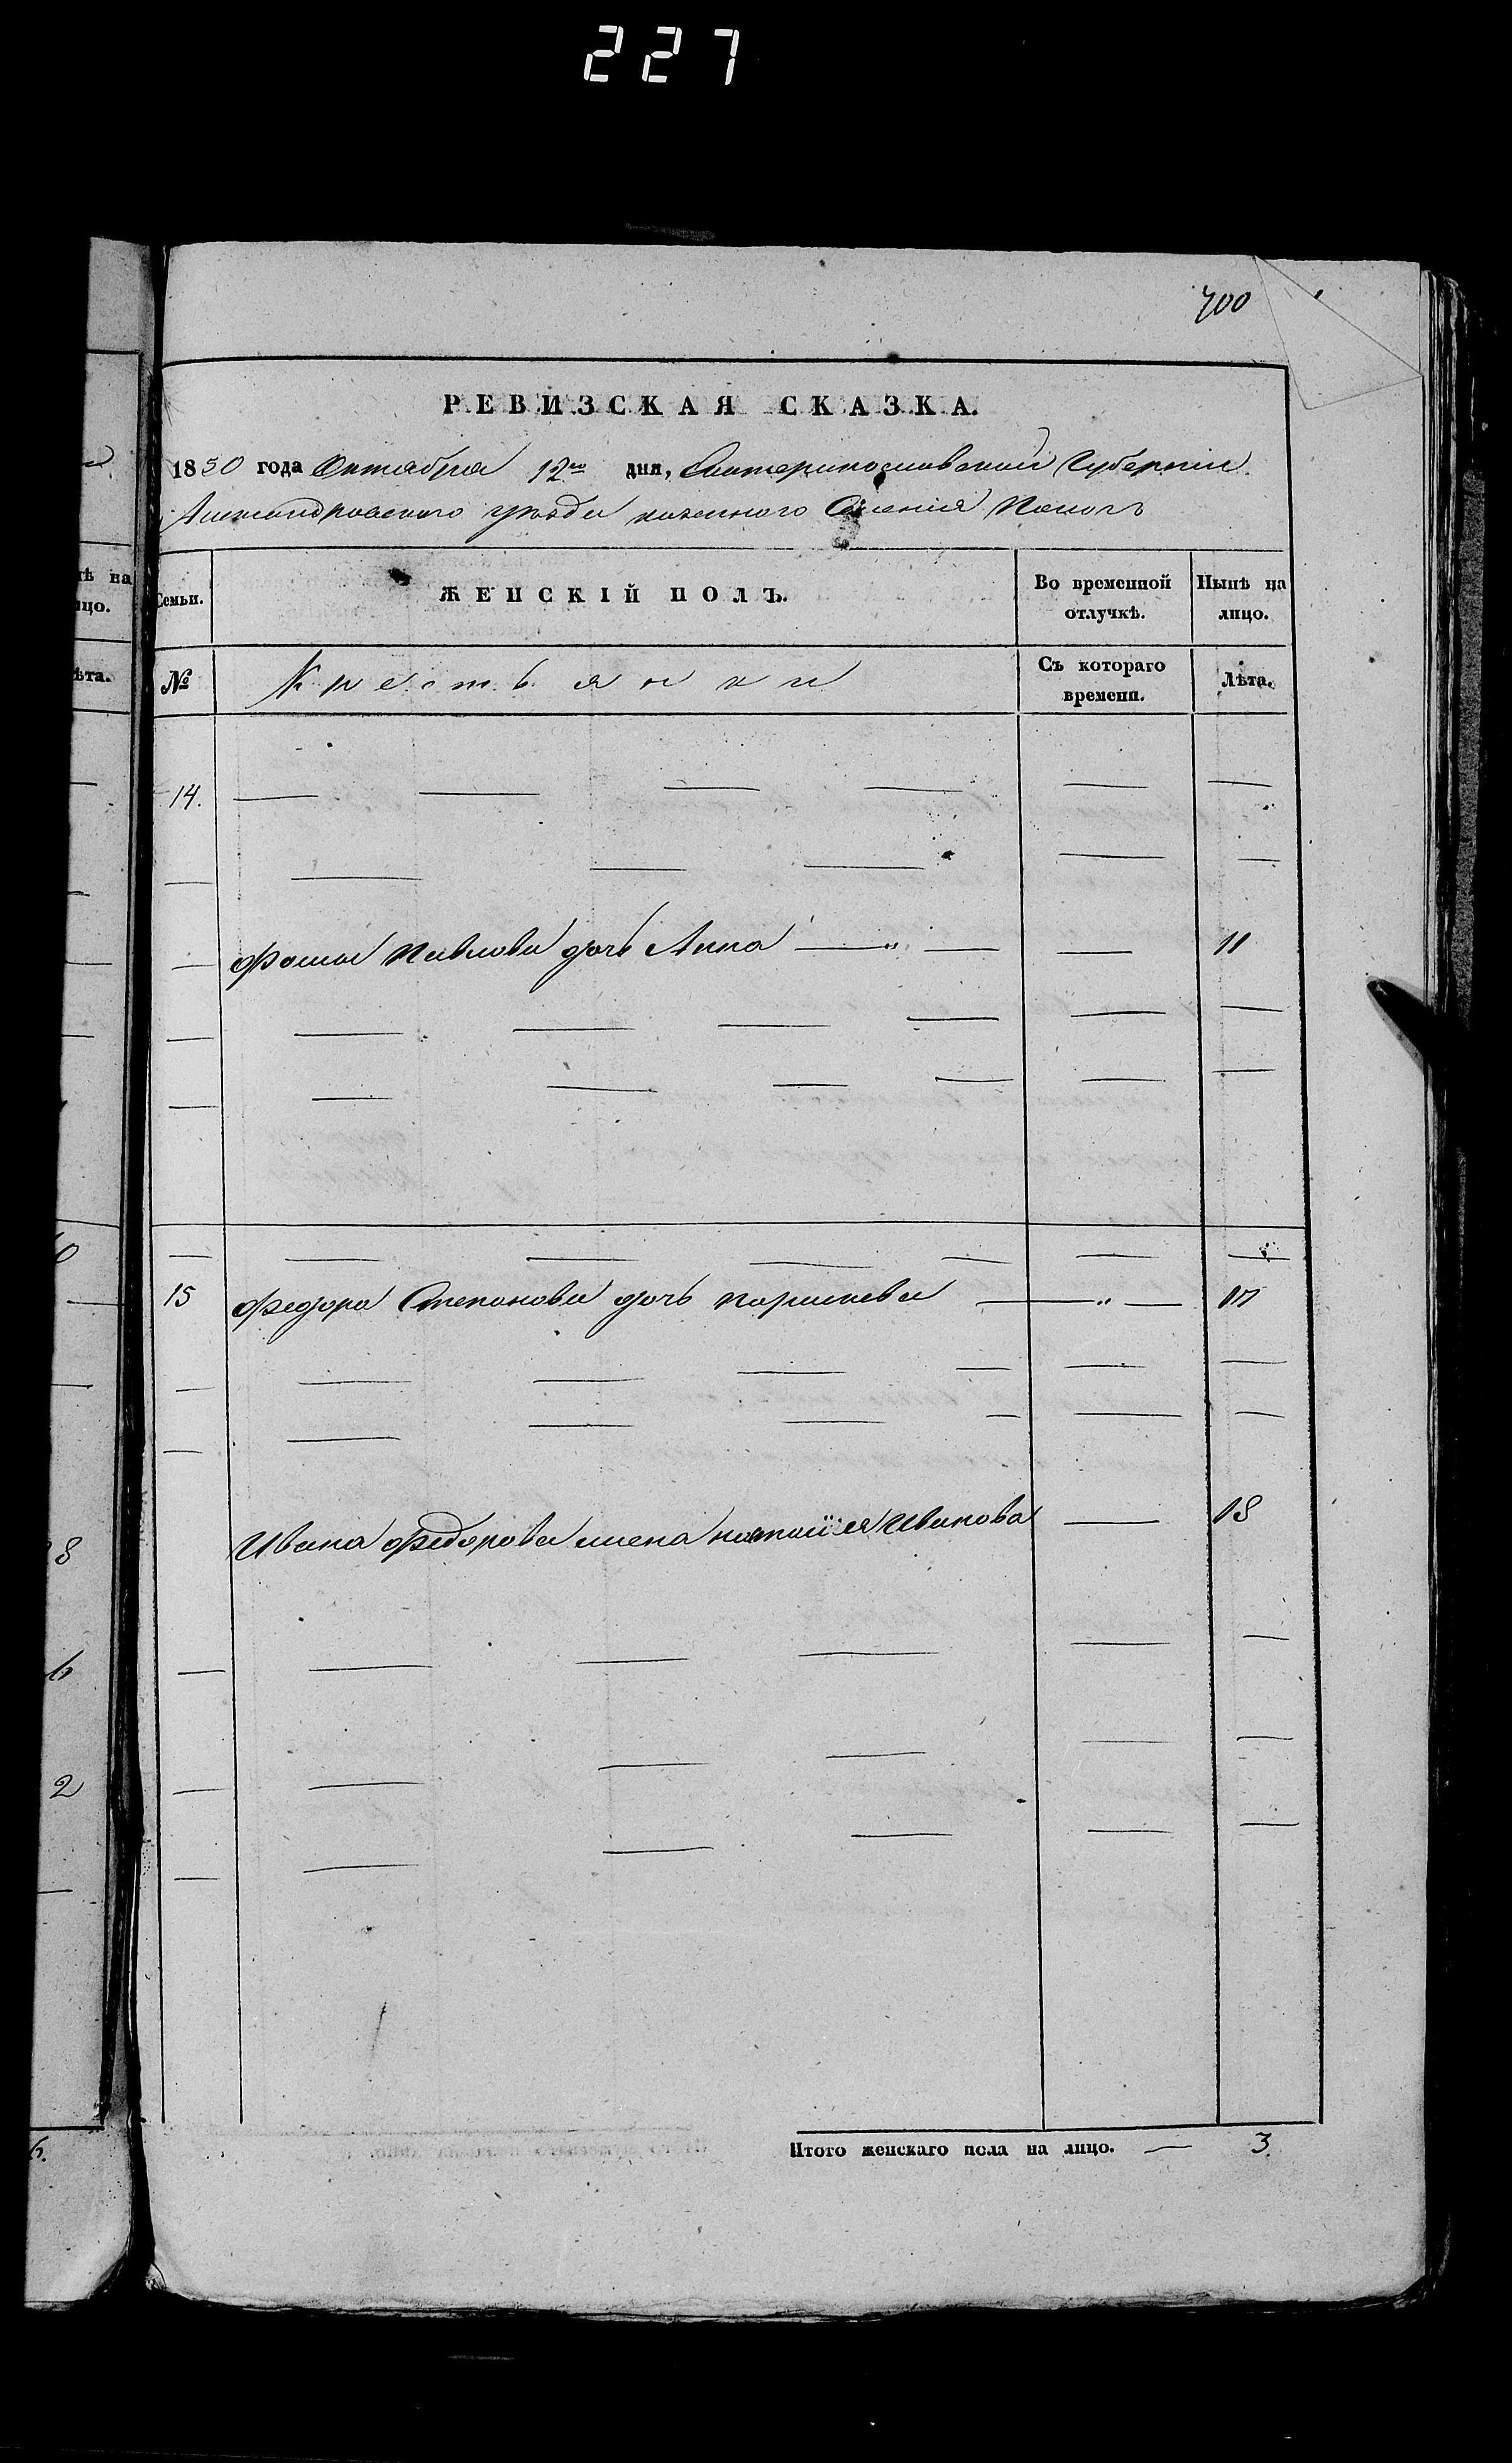 227
700
РЕВИЗСКАЯ СКАЗКА.
1850 года Октября 12го дня, Екатеринославской Губернии
Александровскаго уѣзда казенного Селения
Семьи. ЖЕНСКІЙ ПОЛЪ. Во временной отлучкѣ. Нынѣ на лицо.
№ Крестьянки Съ котораго времени. Лѣта.
14. — — — — — —
— — — — — —
— Фомы Павлова дочь Анна — „ — — 11
— — — — — — —
— — — — — — —
— — — — — — —
15 Федора Степанова дочь — „ — 17
— — — — — — —
— — — — — — —
Ивана Федорова жена Иванова — 18
— — — — — —
— — — — — —
— — — — — —
Итого женскаго пола на лицо. — 3.
тѣ на
ицо.
ѣта.
0
8
6
2
6.